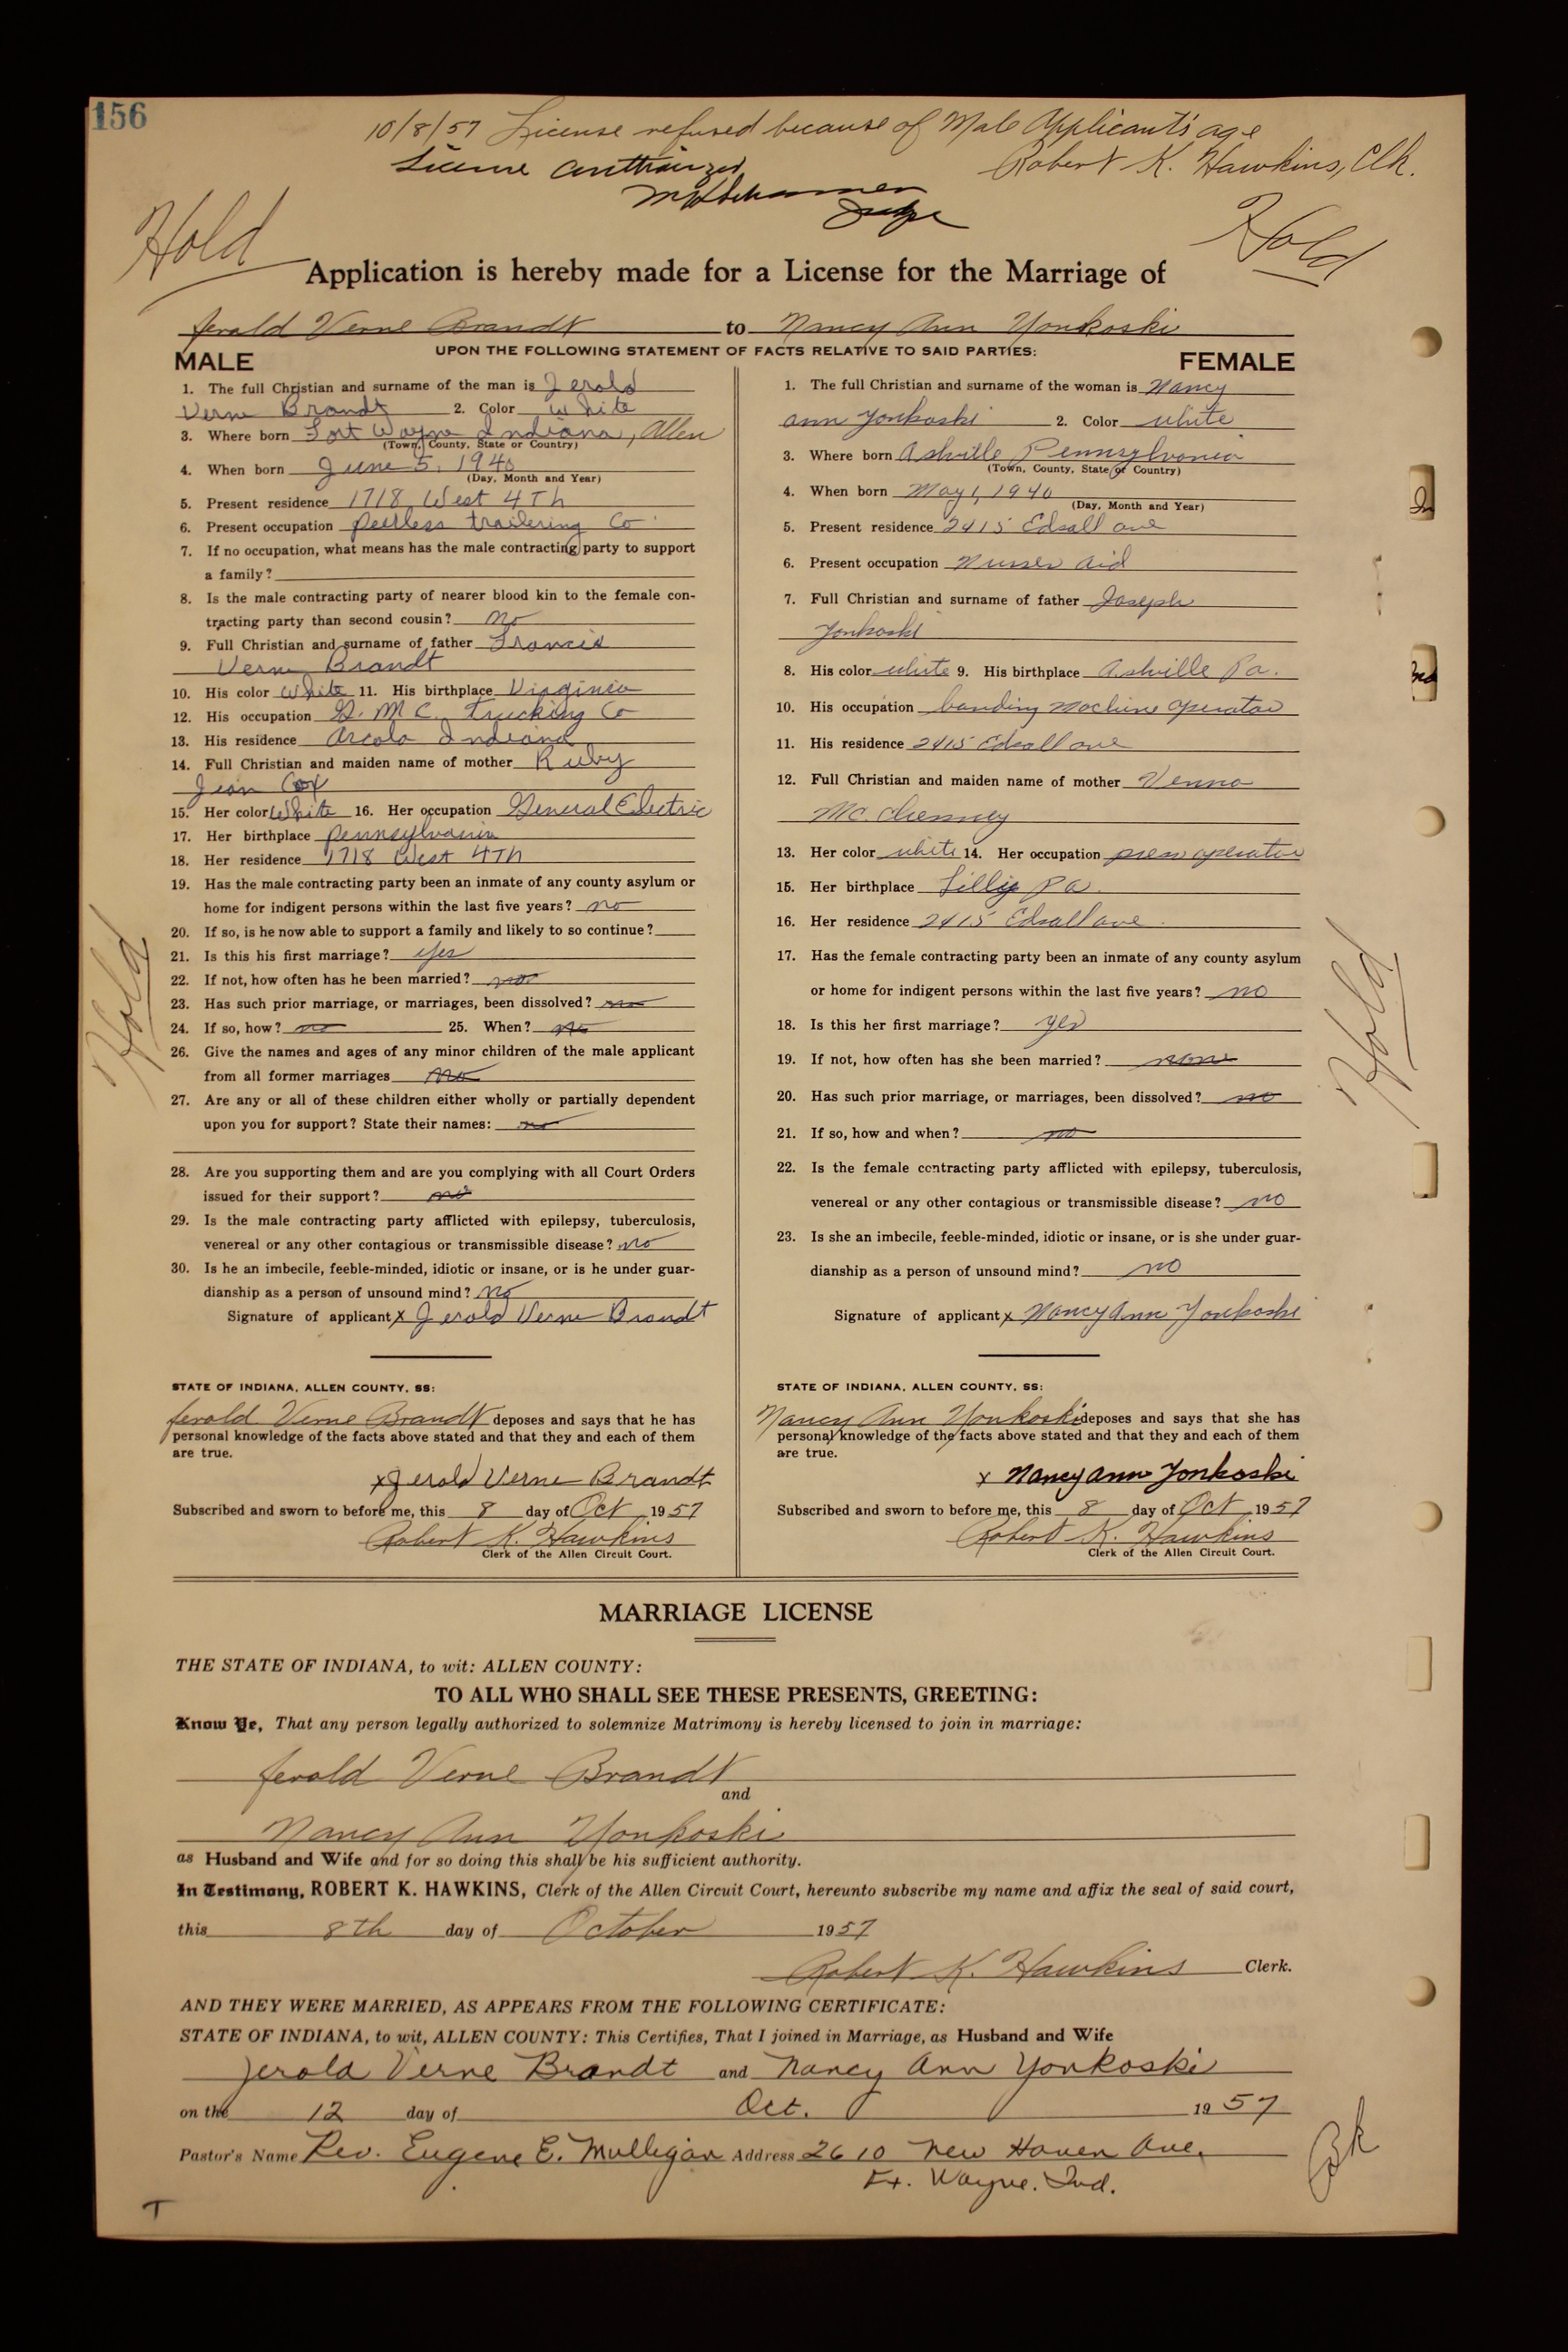 156
10/8/57 License refused because of Male Applicant's age
Robert K. Hawkins, Clk.
License authorized
Judge
Hold
Hold
Application is hereby made for a License for the Marriage of
Jerold Verne Brandt to Nancy Ann Yonkoski
UPON THE FOLLOWING STATEMENT OF FACTS RELATIVE TO SAID PARTIES:
MALE
1. The full Christian and surname of the man is Jerold
Verne Brandt 2. Color White
3. Where born Fort Wayne Indiana, Allen
(Town, County, State or Country)
4. When born June 5, 1940
(Day, Month and Year)
5. Present residence 1718 West 4Th
6. Present occupation peerless trailering Co
7. If no occupation, what means has the male contracting party to support
a family?
8. Is the male contracting party of nearer blood kin to the female con-
tracting party than second cousin? no
9. Full Christian and surname of father Francis
Verne Brandt
10. His color White 11. His birthplace Virginia
12. His occupation G. M C. Trucking Co
13. His residence Arcola Indiana
14. Full Christian and maiden name of mother Ruby
Jean Cox
15. Her color White 16. Her occupation General Electric
17. Her birthplace Pennsylvania
18. Her residence 1718 West 4TH
19. Has the male contracting party been an inmate of any county asylum or
home for indigent persons within the last five years? no
20. If so, is he now able to support a family and likely to so continue?
21. Is this his first marriage? yes
22. If not, how often has he been married? no
23. Has such prior marriage, or marriages, been dissolved? no
24. If so, how? no 25. When? no
26. Give the names and ages of any minor children of the male applicant
from all former marriages no
27. Are any or all of these children either wholly or partially dependent
upon you for support? State their names: no
28. Are you supporting them and are you complying with all Court Orders
issued for their support? no
29. Is the male contracting party afflicted with epilepsy, tuberculosis,
venereal or any other contagious or transmissible disease? no
30. Is he an imbecile, feeble-minded, idiotic or insane, or is he under guar-
dianship as a person of unsound mind? no
Signature of applicant x Jerold Verne Brandt
STATE OF INDIANA, ALLEN COUNTY, SS:
Jerold Verne Brandt deposes and says that he has
personal knowledge of the facts above stated and that they and each of them
are true.
x Jerold Verne Brandt
Subscribed and sworn to before me, this 8 day of Oct 1957
Robert K. Hawkins
Clerk of the Allen Circuit Court.
Hold
FEMALE
1. The full Christian and surname of the woman is Nancy
ann Yonkoski 2. Color white
3. Where born Ashville Pennsylvania
(Town, County, State or Country)
4. When born May 1, 1940
(Day, Month and Year)
5. Present residence 2415 Edsall ave
6. Present occupation Nurses aid
7. Full Christian and surname of father Joseph
Yonkoski
8. His color white 9. His birthplace Ashville Pa.
10. His occupation banding machine operator
11. His residence 2415 Edsall ave
12. Full Christian and maiden name of mother Venna
13. Her color white 14. Her occupation press operator
15. Her birthplace Lilly Pa.
16. Her residence 2415 Edsall ave.
17. Has the female contracting party been an inmate of any county asylum
or home for indigent persons within the last five years? no
18. Is this her first marriage? yes
19. If not, how often has she been married? none
20. Has such prior marriage, or marriages, been dissolved? no
21. If so, how and when? no
22. Is the female contracting party afflicted with epilepsy, tuberculosis,
venereal or any other contagious or transmissible disease? no
23. Is she an imbecile, feeble-minded, idiotic or insane, or is she under guar-
dianship as a person of unsound mind? no
Signature of applicant x Nancy Ann Yonkoski
STATE OF INDIANA, ALLEN COUNTY, SS:
Nancy Ann Yonkoski deposes and says that she has
personal knowledge of the facts above stated and that they and each of them
are true.
x Nancy Ann Yonkoski
Subscribed and sworn to before me, this 8 day of Oct 1957
Robert K. Hawkins
Clerk of the Allen Circuit Court.
Hold
MARRIAGE LICENSE
THE STATE OF INDIANA, to wit: ALLEN COUNTY:
TO ALL WHO SHALL SEE THESE PRESENTS, GREETING:
Know Ye, That any person legally authorized to solemnize Matrimony is hereby licensed to join in marriage:
Jerold Verne Brandt
and
Nancy Ann Yonkoski
as Husband and Wife and for so doing this shall be his sufficient authority.
In Testimony, ROBERT K. HAWKINS, Clerk of the Allen Circuit Court, hereunto subscribe my name and affix the seal of said court,
this 8th day of October 1957
Robert K. Hawkins Clerk.
AND THEY WERE MARRIED, AS APPEARS FROM THE FOLLOWING CERTIFICATE:
STATE OF INDIANA, to wit, ALLEN COUNTY: This Certifies, That I joined in Marriage, as Husband and Wife
Jerold Verne Brandt and Nancy Ann Yonkoski
on the 12 day of Oct. 1957
Pastor's Name Rev. Eugene E. Mulligan Address 2610 New Haven Ave.
Ft. Wayne. Ind.
T